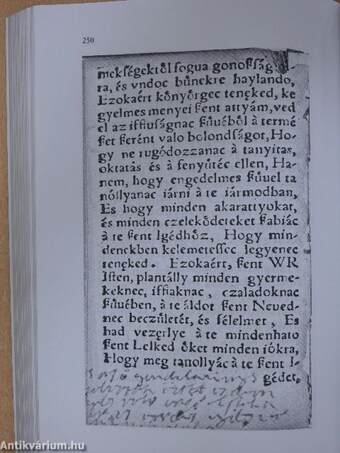 250
mekségektől fogua gonoſſág
ra, és vndoc bűnekre haylando,
Ezokaért könyörgec teneked, ke
gyelmes menyei ſzent attyám, ved
el az iffiuſágnac ſzűuéből à termé
ſzet ſzerént valo bolondságot, Ho-
gy ne rugódozzanac à tanyitás,
oktatás és à fenyűtéc ellen, Ha-
nem, hogy engedelmes ſzűuel ta
nóllyanac iárni à te iármodban,
Es hogy minden akarattyokat,
és minden czelekődeteket ſzabiác
à te ſzent Igédhőz, Hogy min-
denekben kelemetessec legyenec
teneked. Ezokaért, ſzent WR
Iſten, plantálly minden gyerme-
keknec, iffiaknac, czaladoknac
ſzűuében, à te áldot ſzent Neued-
nec beczűletét, és félelmet, Es
had vezęrlye à te mindenhato
ſzent Lelked őket minden iókra,
Hogy meg tanollyác à te ſzent I-
gédet,
Antikvárium.hu